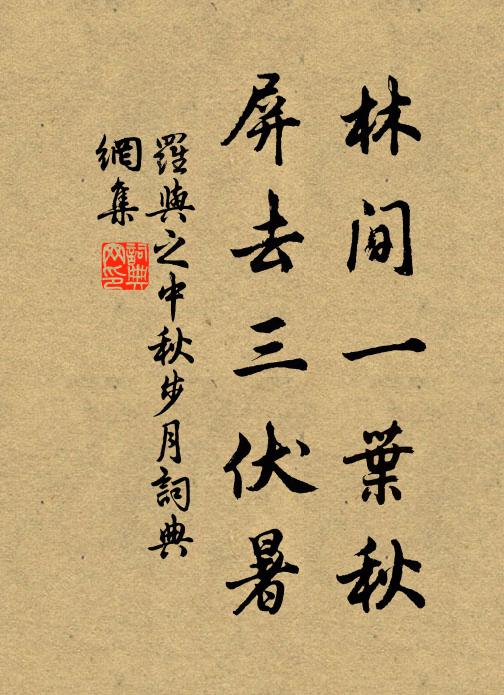 林間一葉秋
屏去三伏暑
羅與之中秋步月詞典
網集
詞典
网印